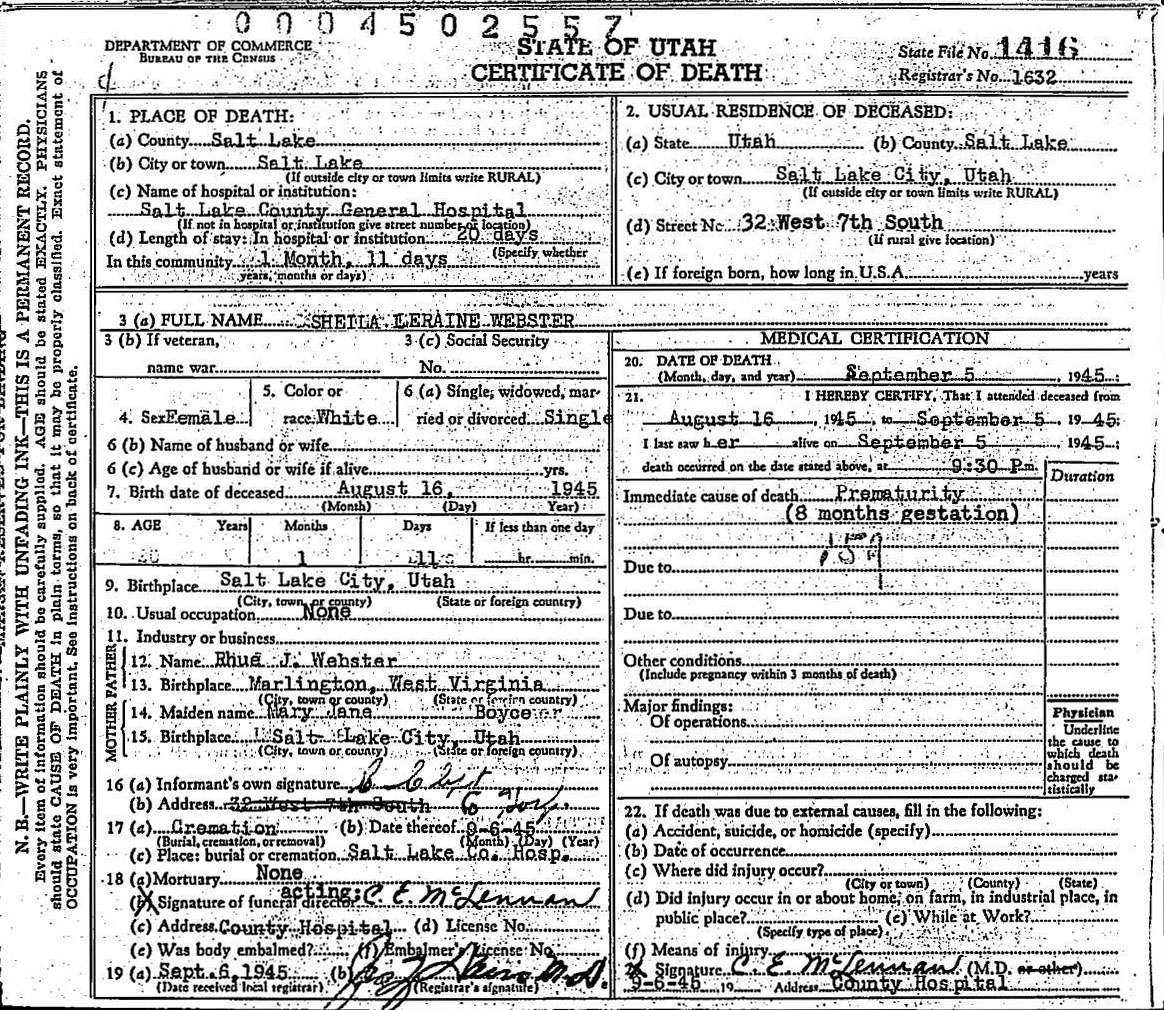 0004502557
DEPARTMENT OF COMMERCE
BUREAU OF THE CENSUS
STATE OF UTAH
CERTIFICATE OF DEATH
State File No. 1416
Registrar's No. 1632
N. B.—WRITE PLAINLY WITH UNFADING INK—THIS IS A PERMANENT RECORD.
Every item of information should be carefully supplied. AGE should be stated EXACTLY. PHYSICIANS
should state CAUSE OF DEATH in plain terms, so that it may be properly classified. Exact statement of
OCCUPATION is very important. See instructions on back of certificate.
1. PLACE OF DEATH:
(a) County Salt Lake
(b) City or town Salt Lake
(If outside city or town limits write RURAL)
(c) Name of hospital or institution:
Salt Lake County General Hospital
(If not in hospital or institution give street number or location)
(d) Length of stay: In hospital or institution 20 days
(Specify whether
In this community 1 Month, 11 days
years, months or days)
2. USUAL RESIDENCE OF DECEASED:
(a) State Utah (b) County Salt Lake
(c) City or town Salt Lake City, Utah
(If outside city or town limits write RURAL)
(d) Street No. 32 West 7th South
(If rural give location)
(e) If foreign born, how long in U.S.A. years
3 (a) FULL NAME SHEILA LERAINE WEBSTER
3 (b) If veteran,
name war
3 (c) Social Security
No.
4. Sex Female
5. Color or
race White
6 (a) Single, widowed, mar-
ried or divorced Single
6 (b) Name of husband or wife
6 (c) Age of husband or wife if alive yrs.
7. Birth date of deceased August 16, 1945
(Month) (Day) Year)
8. AGE Years Months Days If less than one day
1 11 hr. min.
9. Birthplace Salt Lake City, Utah
(City, town or county) (State or foreign country)
10. Usual occupation None
11. Industry or business
FATHER
12. Name Rhue J. Webster
13. Birthplace Marlington, West Virginia
(City, town or county) (State or foreign country)
MOTHER
14. Maiden name Mary Jane Boyce
15. Birthplace Salt Lake City, Utah
(City, town or county) (State or foreign country)
16 (a) Informant's own signature
(b) Address 32 West 7th South
17 (a) Cremation (b) Date thereof 9-6-45
(Burial, cremation, or removal) (Month) (Day) (Year)
(c) Place: burial or cremation Salt Lake Co. Hosp.
18 (a) Mortuary None
acting:
(b) Signature of funeral director C. E. McLennan
(c) Address County Hospital (d) License No.
(e) Was body embalmed? (f) Embalmer's License No.
19 (a) Sept. 6, 1945 (b) M.D.
(Date received local registrar) (Registrar's signature)
MEDICAL CERTIFICATION
20. DATE OF DEATH
(Month, day, and year) September 5, 1945
21. I HEREBY CERTIFY, That I attended deceased from
August 16, 1945, to September 5, 1945;
I last saw her alive on September 5, 1945;
death occurred on the date stated above, at 9:30 P.m.
Duration
Immediate cause of death Prematurity
(8 months gestation)
159
Due to
Due to
Other conditions
(Include pregnancy within 3 months of death)
Major findings:
Of operations
Of autopsy
Physician
Underline
the cause to
which death
should be
charged sta-
tistically
22. If death was due to external causes, fill in the following:
(a) Accident, suicide, or homicide (specify)
(b) Date of occurrence
(c) Where did injury occur?
(City or town) (County) (State)
(d) Did injury occur in or about home, on farm, in industrial place, in
public place? (e) While at Work?
(Specify type of place)
(f) Means of injury
Signature C. E. McLennan (M.D. or other)
9-6-45 19 Address County Hospital